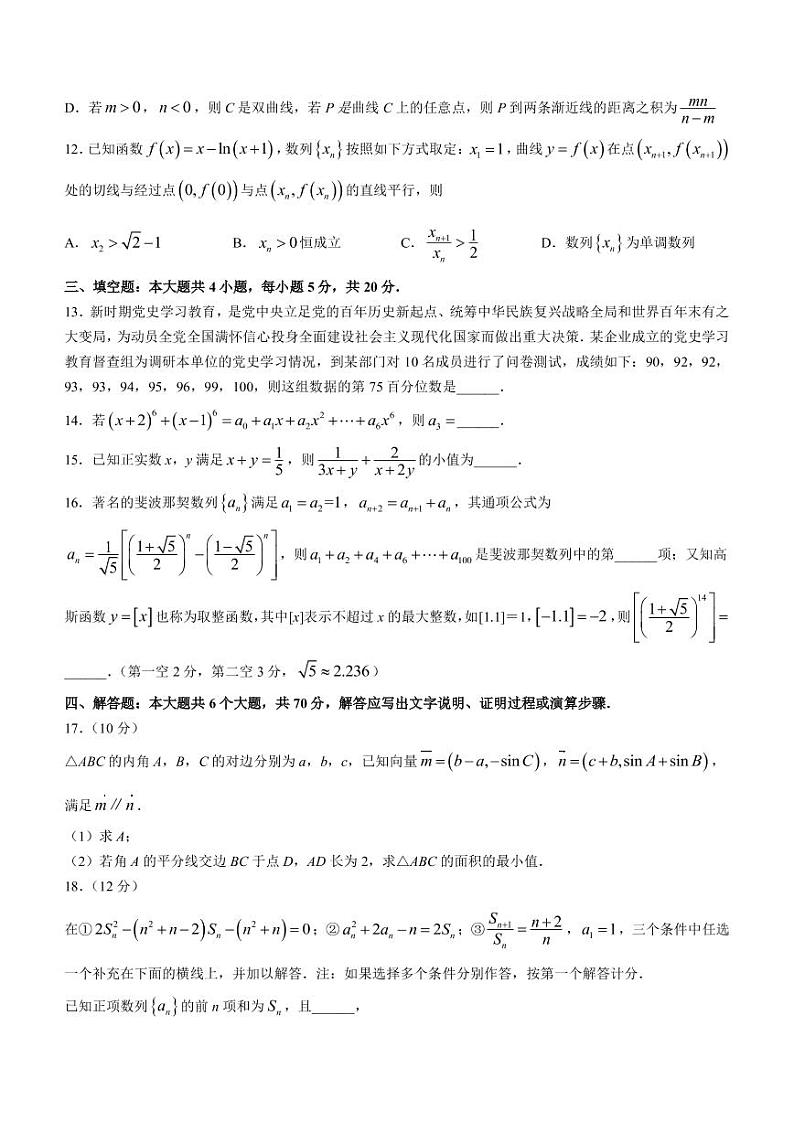 D．若 $m>0$，$n<0$，则 C 是双曲线，若 P 是曲线 C 上的任意点，则 P 到两条渐近线的距离之积为 $\frac{mn}{n-m}$
12．已知函数 $f(x)=x-\ln(x+1)$，数列 $\{x_n\}$ 按照如下方式取定：$x_1=1$，曲线 $y=f(x)$ 在点 $(x_{n+1},f(x_{n+1}))$
处的切线与经过点 $(0,f(0))$ 与点 $(x_n,f(x_n))$ 的直线平行，则
A．$x_2>\sqrt{2}-1$ B．$x_n>0$ 恒成立 C．$\frac{x_{n+1}}{x_n}>\frac{1}{2}$ D．数列 $\{x_n\}$ 为单调数列
三、填空题：本大题共 4 小题，每小题 5 分，共 20 分．
13．新时期党史学习教育，是党中央立足党的百年历史新起点、统筹中华民族复兴战略全局和世界百年末有之
大变局，为动员全党全国满怀信心投身全面建设社会主义现代化国家而做出重大决策．某企业成立的党史学习
教育督查组为调研本单位的党史学习情况，到某部门对 10 名成员进行了问卷测试，成绩如下：90，92，92，
93，93，94，95，96，99，100，则这组数据的第 75 百分位数是______．
14．若 $(x+2)^6+(x-1)^6=a_0+a_1x+a_2x^2+\cdots+a_6x^6$，则 $a_3=$______．
15．已知正实数 x，y 满足 $x+y=\frac{1}{5}$，则 $\frac{1}{3x+y}+\frac{2}{x+2y}$ 的小值为______．
16．著名的斐波那契数列 $\{a_n\}$ 满足 $a_1=a_2=1$，$a_{n+2}=a_{n+1}+a_n$，其通项公式为
$a_n=\frac{1}{\sqrt{5}}\left[\left(\frac{1+\sqrt{5}}{2}\right)^n-\left(\frac{1-\sqrt{5}}{2}\right)^n\right]$，则 $a_1+a_2+a_4+a_6+\cdots+a_{100}$ 是斐波那契数列中的第______项；又知高
斯函数 $y=[x]$ 也称为取整函数，其中[x]表示不超过 x 的最大整数，如[1.1]＝1，$[-1.1]=-2$，则 $\left[\left(\frac{1+\sqrt{5}}{2}\right)^{14}\right]=$
______．（第一空 2 分，第二空 3 分，$\sqrt{5}\approx2.236$）
四、解答题：本大题共 6 个大题，共 70 分，解答应写出文字说明、证明过程或演算步骤．
17．（10 分）
△ABC 的内角 A，B，C 的对边分别为 a，b，c，已知向量 $\overline{m}=(b-a,-\sin C)$，$\vec{n}=(c+b,\sin A+\sin B)$，
满足 $\vec{m}∥\vec{n}$．
（1）求 A；
（2）若角 A 的平分线交边 BC 于点 D，AD 长为 2，求△ABC 的面积的最小值．
18．（12 分）
在①$2S_n^2-(n^2+n-2)S_n-(n^2+n)=0$；②$a_n^2+2a_n-n=2S_n$；③$\frac{S_{n+1}}{S_n}=\frac{n+2}{n}$，$a_1=1$，三个条件中任选
一个补充在下面的横线上，并加以解答．注：如果选择多个条件分别作答，按第一个解答计分．
已知正项数列 $\{a_n\}$ 的前 n 项和为 $S_n$，且______，